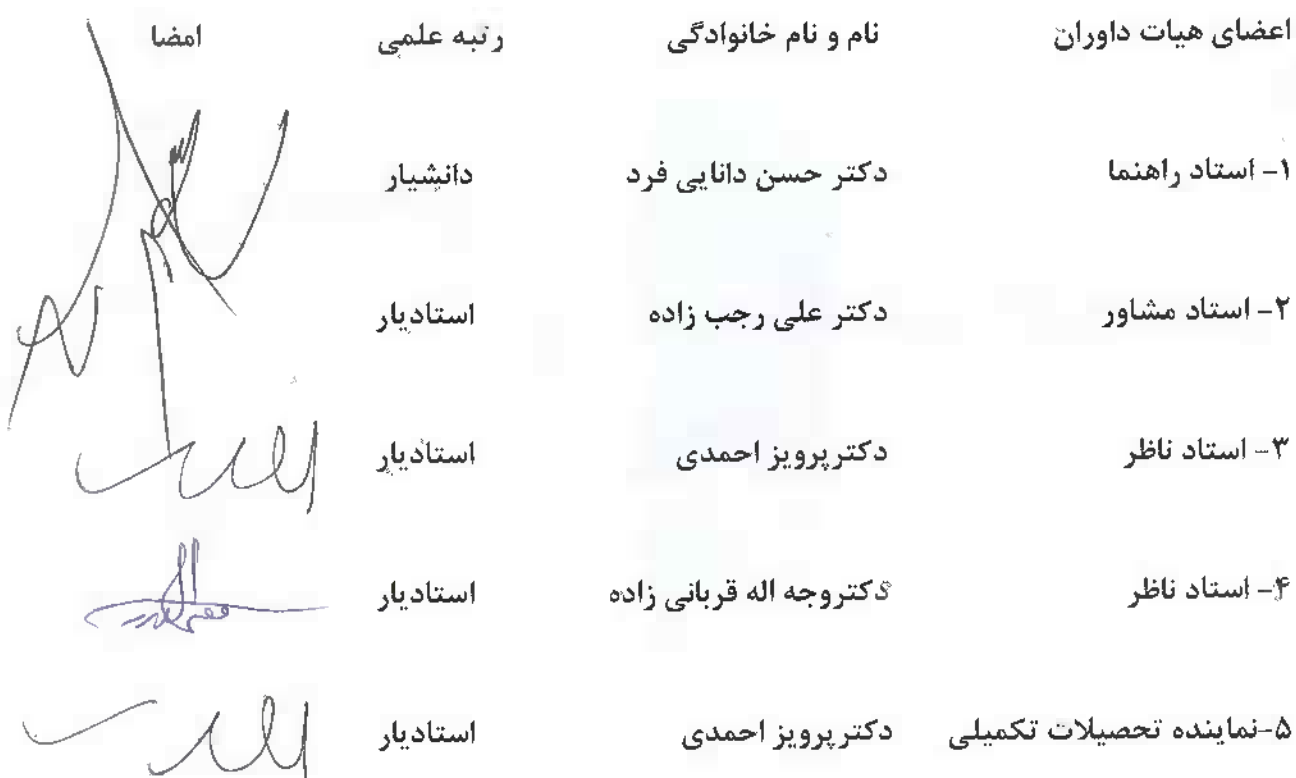 اعضای هیات داوران نام و نام خانوادگی رتبه علمی امضا
۱- استاد راهنما دکتر حسن دانایی فرد دانشیار
۲- استاد مشاور دکتر علی رجب زاده استادیار
۳- استاد ناظر دکترپرویز احمدی استادیار
۴- استاد ناظر دکتروجه اله قربانی زاده استادیار
۵-نماینده تحصیلات تکمیلی دکترپرویز احمدی استادیار